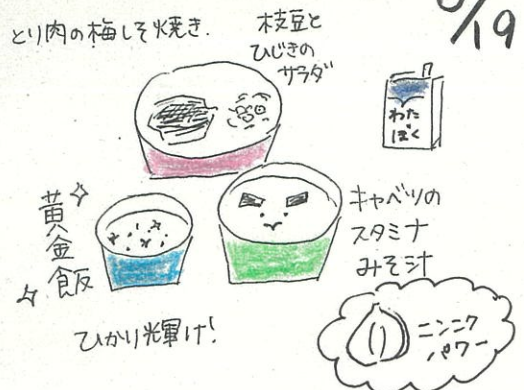 とり肉の梅しそ焼き.
枝豆と
ひじきの
サラダ
/19
わた
ぼく
黄金飯
キャベツの
スタミナ
みそ汁
ひかり輝け!
ニンニク
パワー